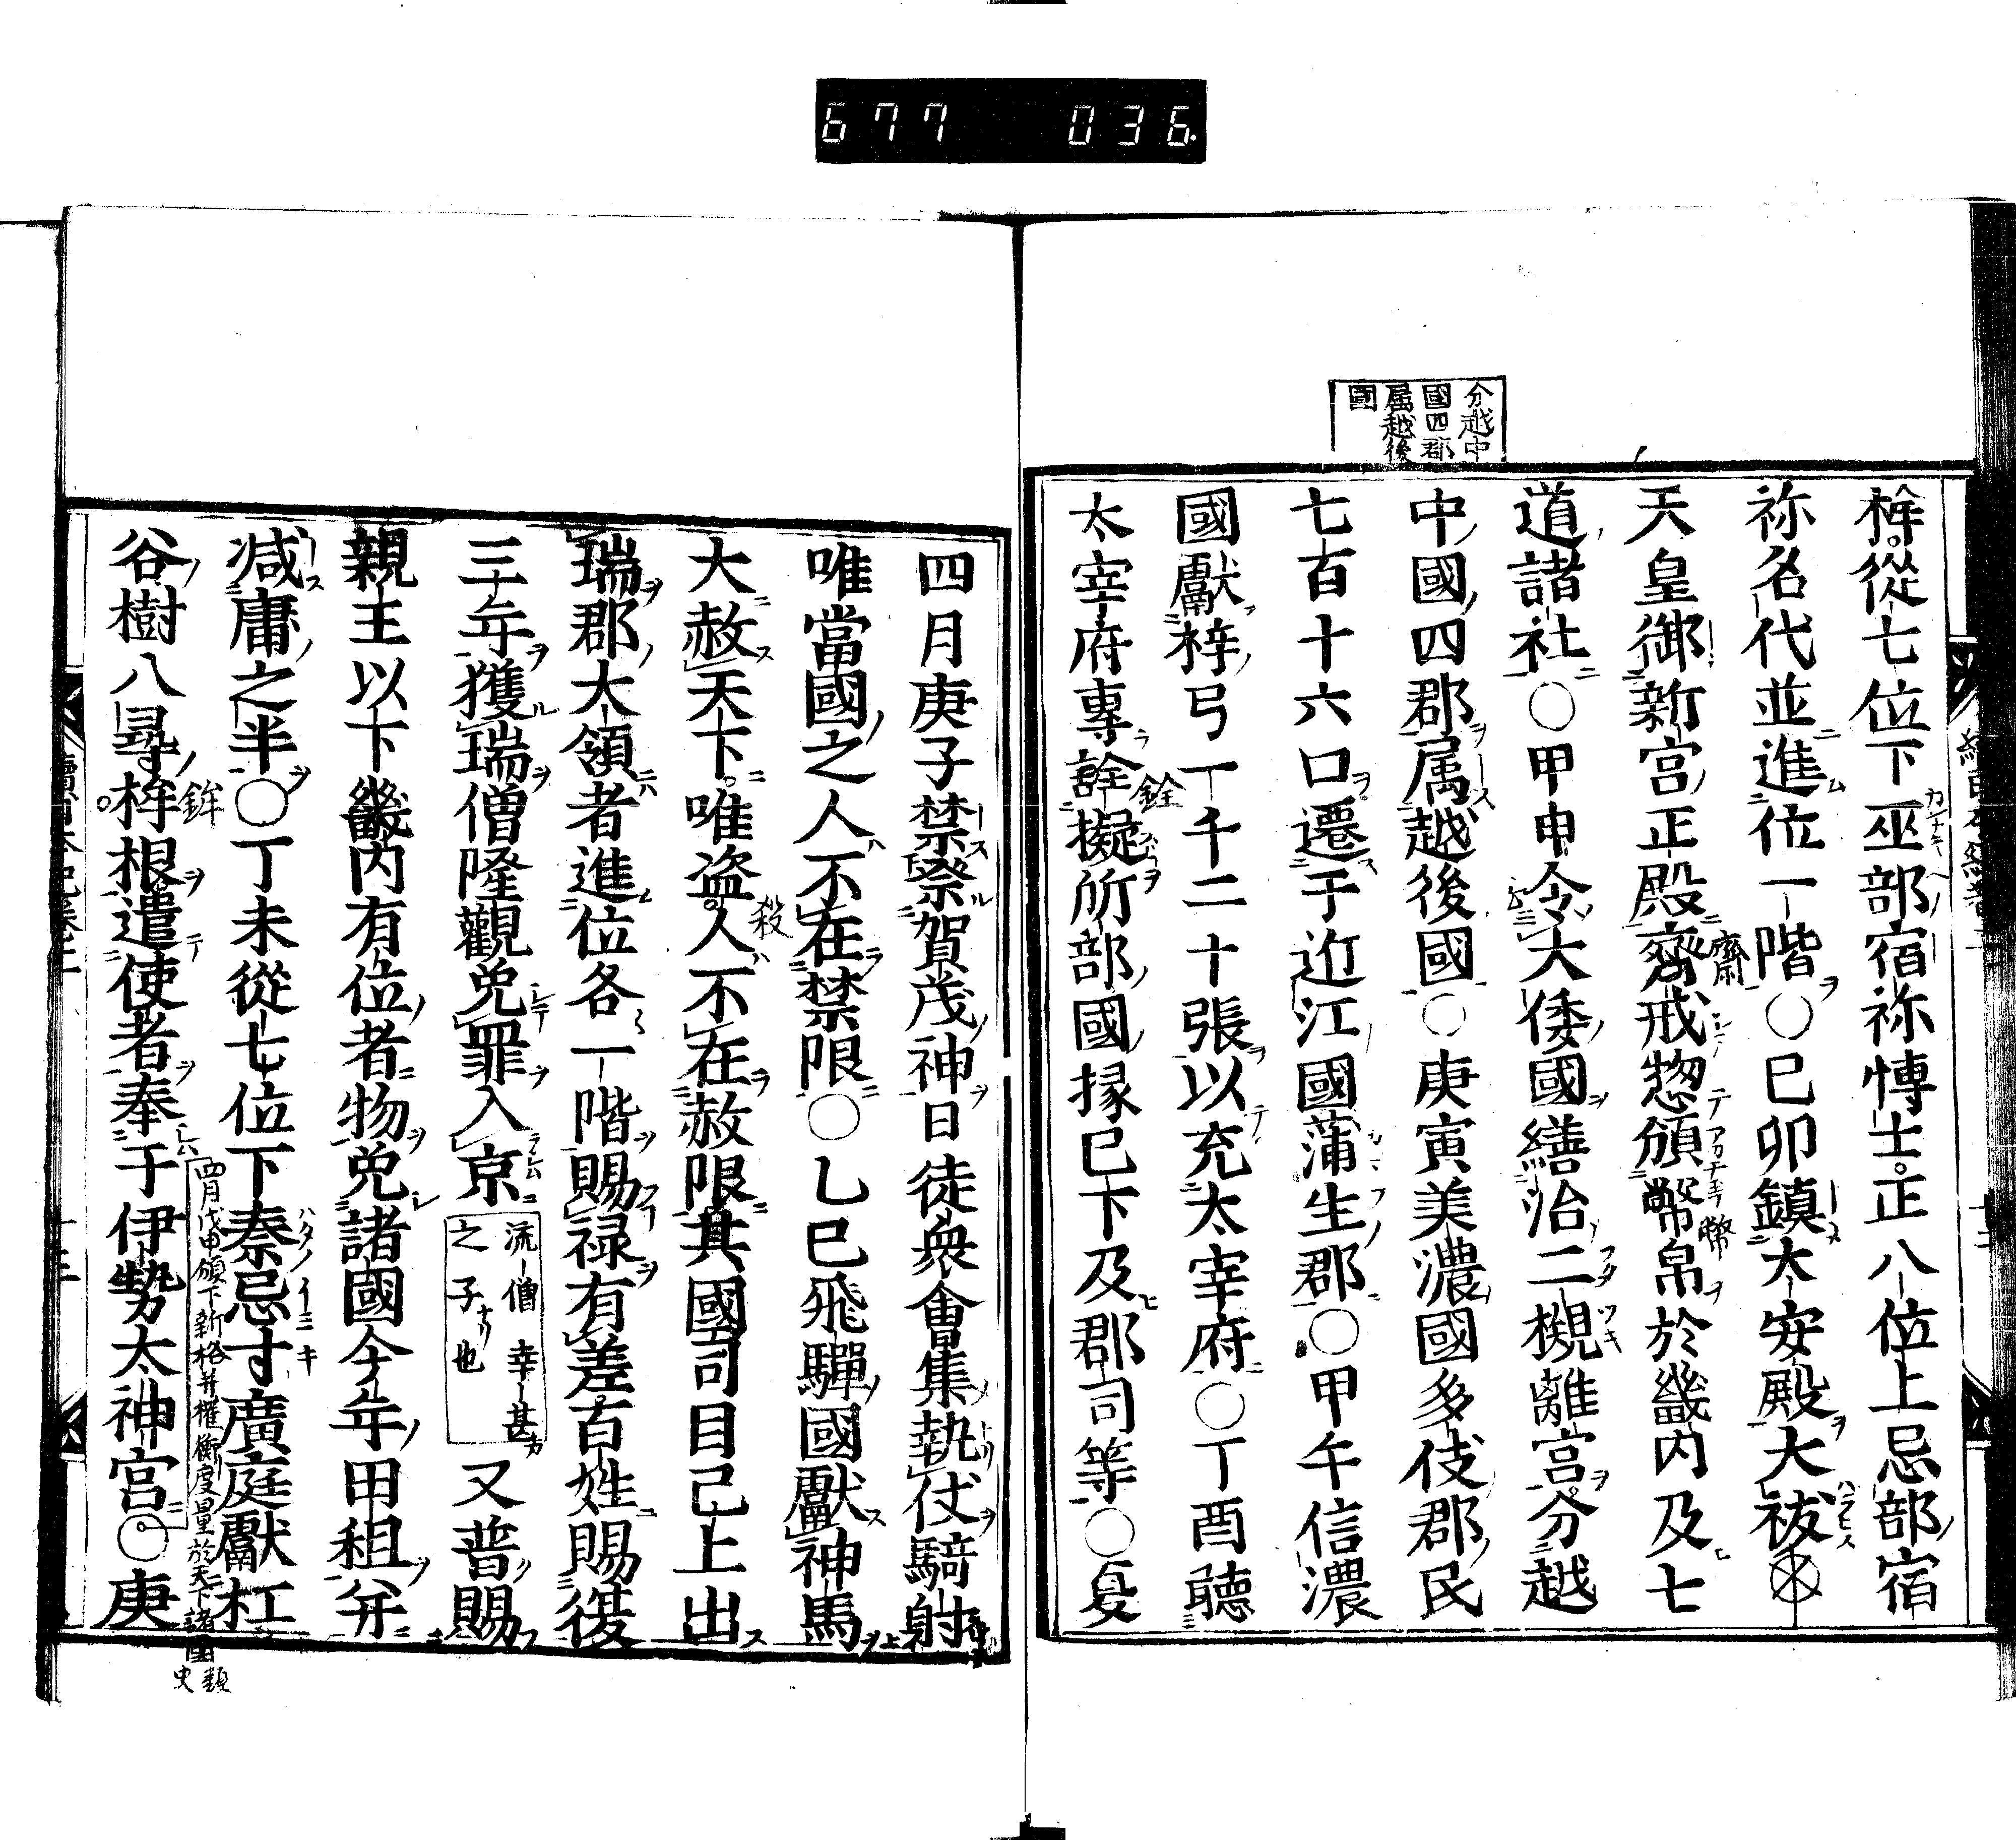 677 036
分越中
國四郡
属越後
國
桙從七位下巫部宿祢愽士正八位上忌部宿
祢名代並進位一階○己卯鎮大安殿大祓
天皇御新宮正殿齋戒惣頒幣帛於畿内及七
道諸社○甲申令大倭國繕治二槻離宮分越
中國四郡属越後國○庚寅美濃國多伎郡民
七百十六口遷于近江國蒲生郡○甲午信濃
國獻梓弓一千二十張以充太宰府○丁酉聽
太宰府專詮擬所部國掾已下及郡司等○夏
銓
齋
幣
四月庚子禁祭賀茂神日徒衆會集執仗騎射
唯當國之人不在禁限○乙巳飛驒國獻神馬
大赦天下唯盗人不在赦限其國司目已上出
殺
瑞郡大領者進位各一階賜禄有差百姓賜復
三年獲瑞僧隆觀免罪入京
流僧幸甚
之子也
又普賜
親王以下畿内有位者物免諸國今年田租并
减庸之半○丁未從七位下秦忌寸廣庭獻杠
四月戊申頒下新格并權衡度量於天下諸國
類史
谷樹八尋桙根遣使者奉于伊勢太神宮○庚
鉾